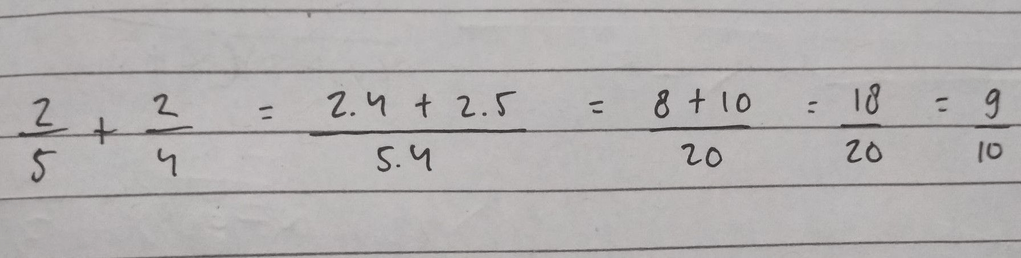 2/5 + 2/4 = (2.4 + 2.5)/(5.4) = (8 + 10)/20 = 18/20 = 9/10